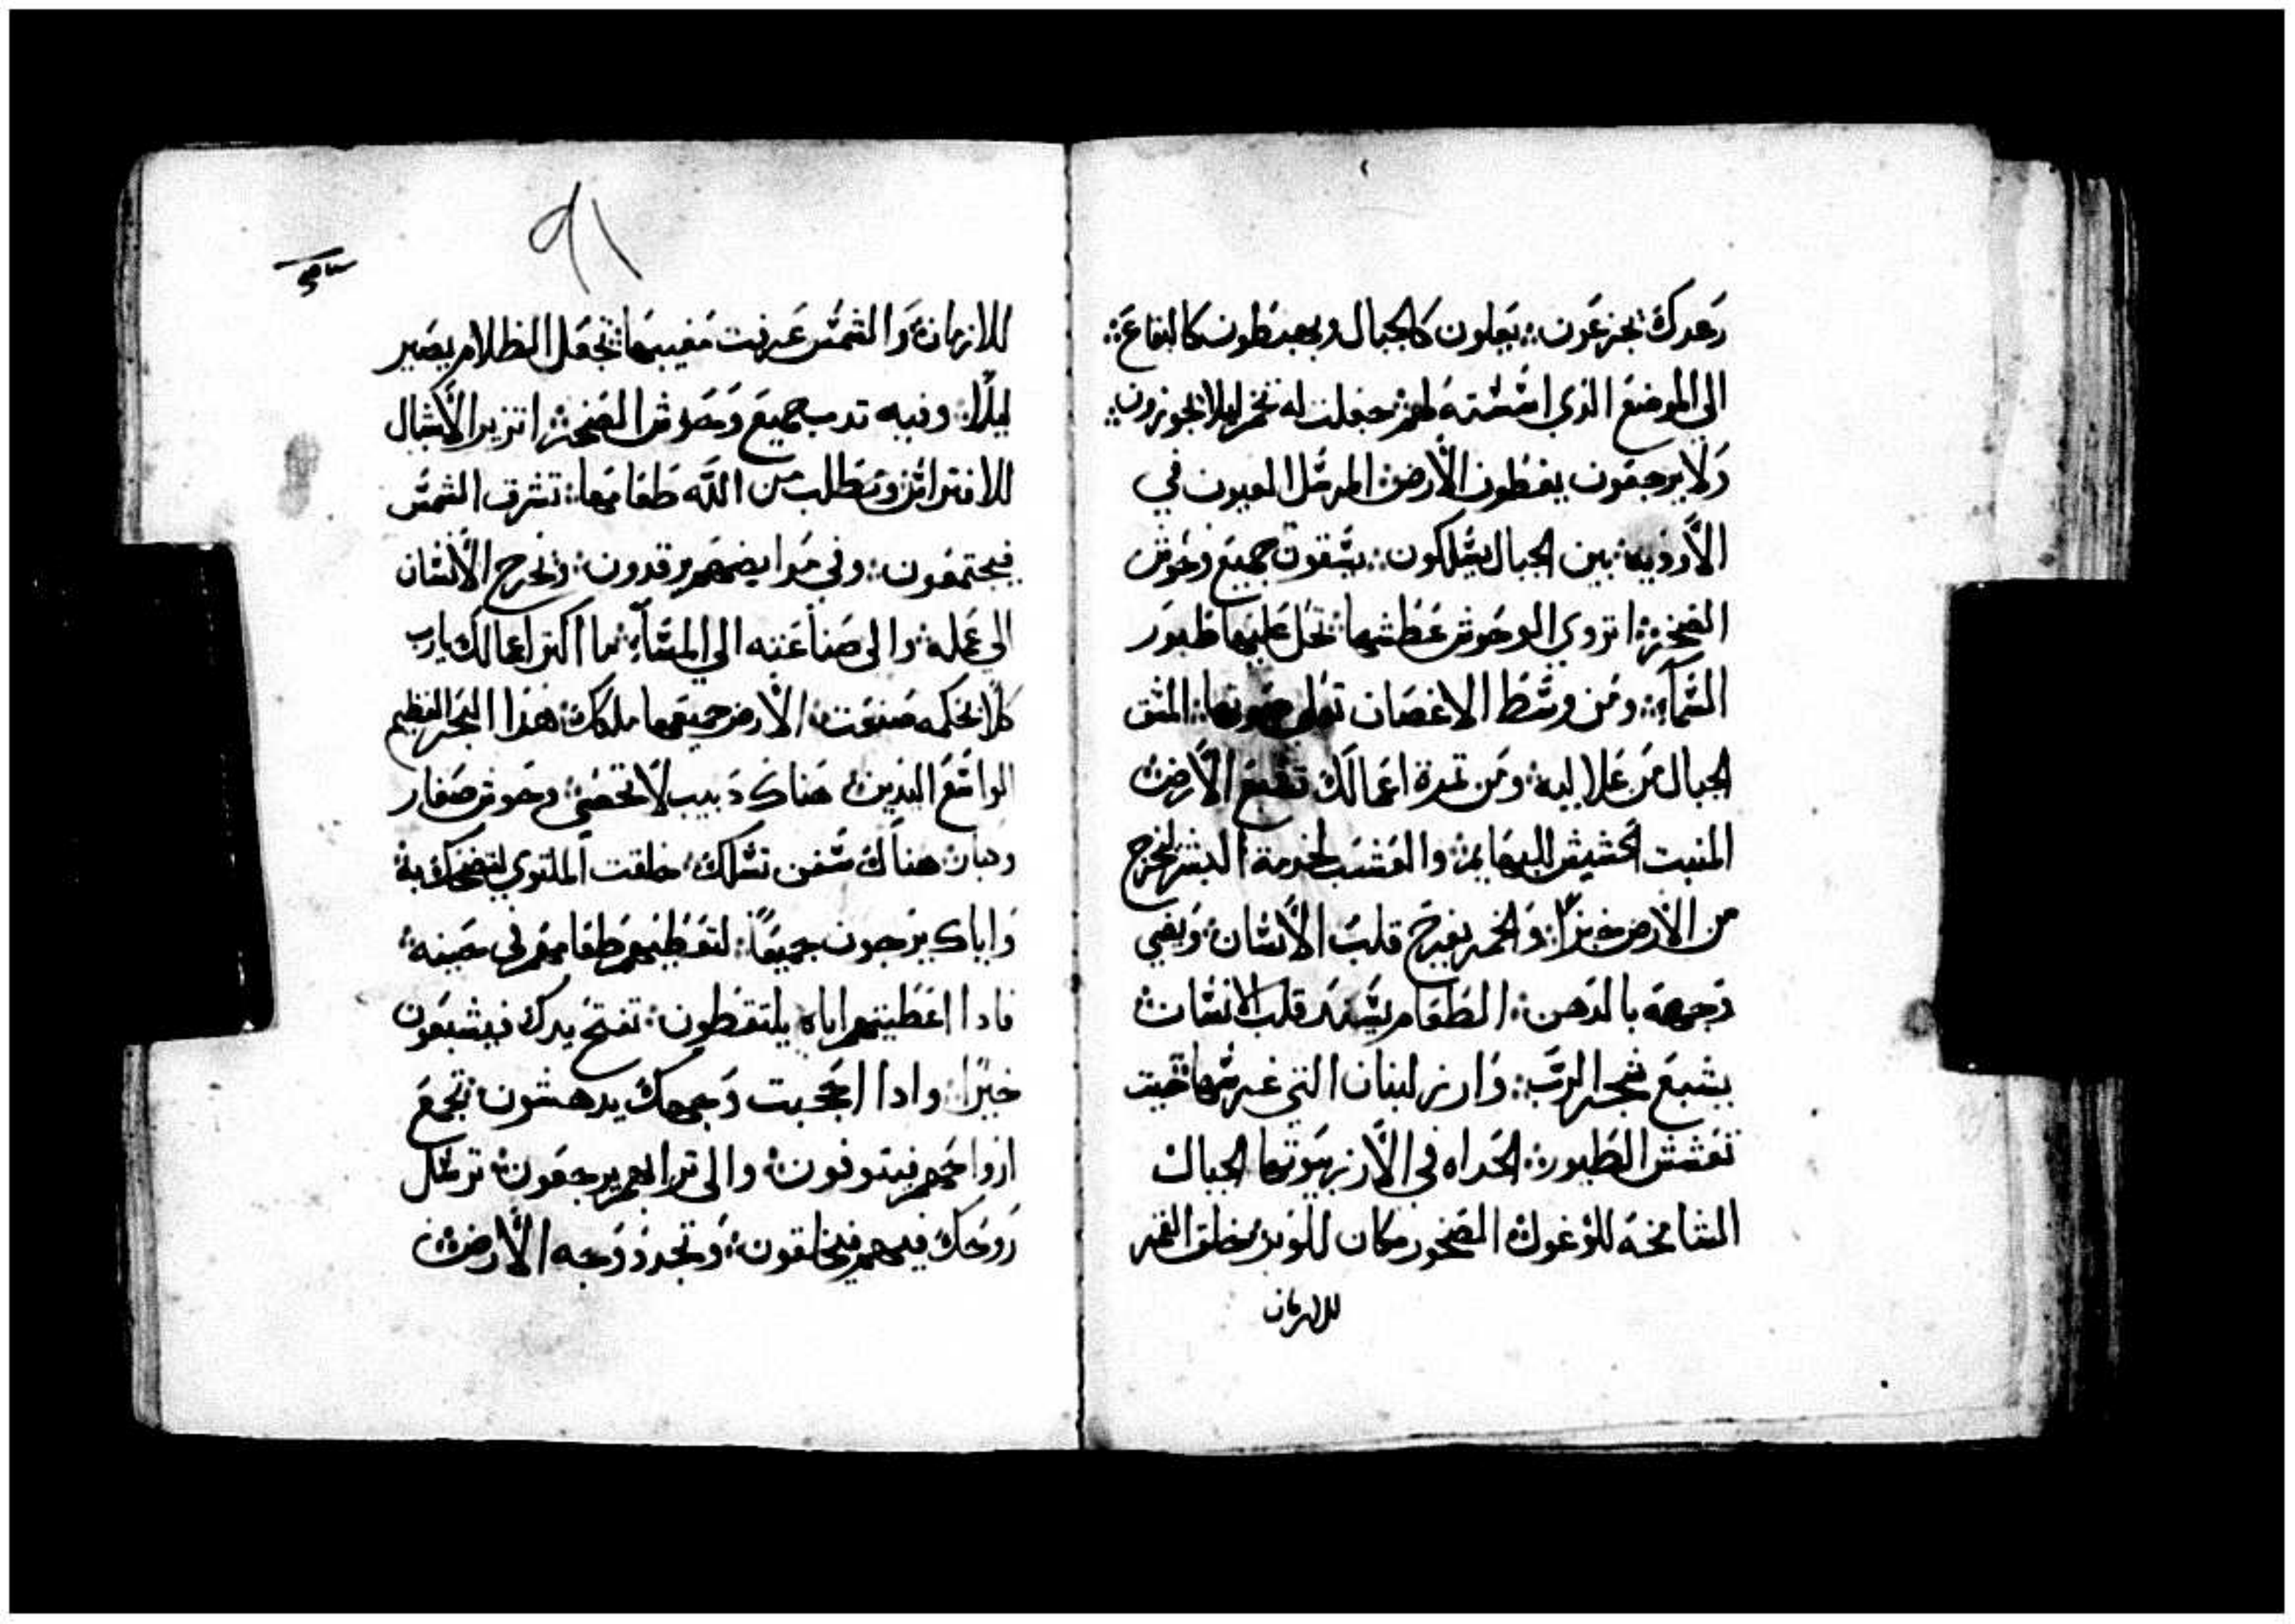 رعدك يجزعون : يعلون كالجبال ويهبطون كالبقاع :
الى الموضع الذي اسسته لهم جعلت له تخم ليلا يجوزون :
ولا يرجعون يغطون الأرض : المرسل العيون في
الأودية : بين الجبال يسلكون : يسقون جميع وحوش
الصخرة : تروي الوحوش عطشها : تحل عليها طيور
السمآء : ومن وسط الاغصان تعلي صوتها : المسق
الجبال من علاليه : ومن تمرة اعمالك تشبع الأرض :
المنبت الحشيش للبهايم : والعشب لخدمة البشر ليخرج
من الأرض خبزاً : والخمر يفرح قلب الأنسان : وبهي
وجهه بالدهن : الطعام يشدد قلب الانسان :
يشبع شجر الرب : وارز لبنان التي غرسها : حيت
تعشش الطيور : الحداه في الأرز بيوتها الجبال
الشامخة للوعول : الصخور مكان للوبر : خلق القمر
للازمان
٩١
للازمان : والشمس عرفت مغيبها : تجعل الظلام يصير
ليلاً : وفيه تدب جميع وحوش الصخرة : تزير الأشبال
للافتراس : وتطلب من الله طعامها : تشرق الشمس
فيجتمعون : وفي مرابضهم يرقدون : يخرج الأنسان
الى عمله : والى صناعته الى المسآء : ما اكتر اعمالك يارب
كلا بحكمه صنعت : الأرض جميعها ملوك : هذا البحر العظيم
الواسع اليدين : هناك دبيب لا تحصى : وحوش صغار
وكبار : هناك سفن تسلك : خلقت الملتوي لتضحك به :
واياك يرجون جميعاً : لتعطيهم طعامهم في حينه :
فادا اعطيتهم اياه يلتقطون : تفتح يدك فيشبعون
خيرًا : وادا احجبت وجهك يدهشون : تجمع
ارواحهم فيتوفون : والى ترابهم يرجعون : ترسل
روحك فيهم فيخلقون : وتجدد وجه الأرض :